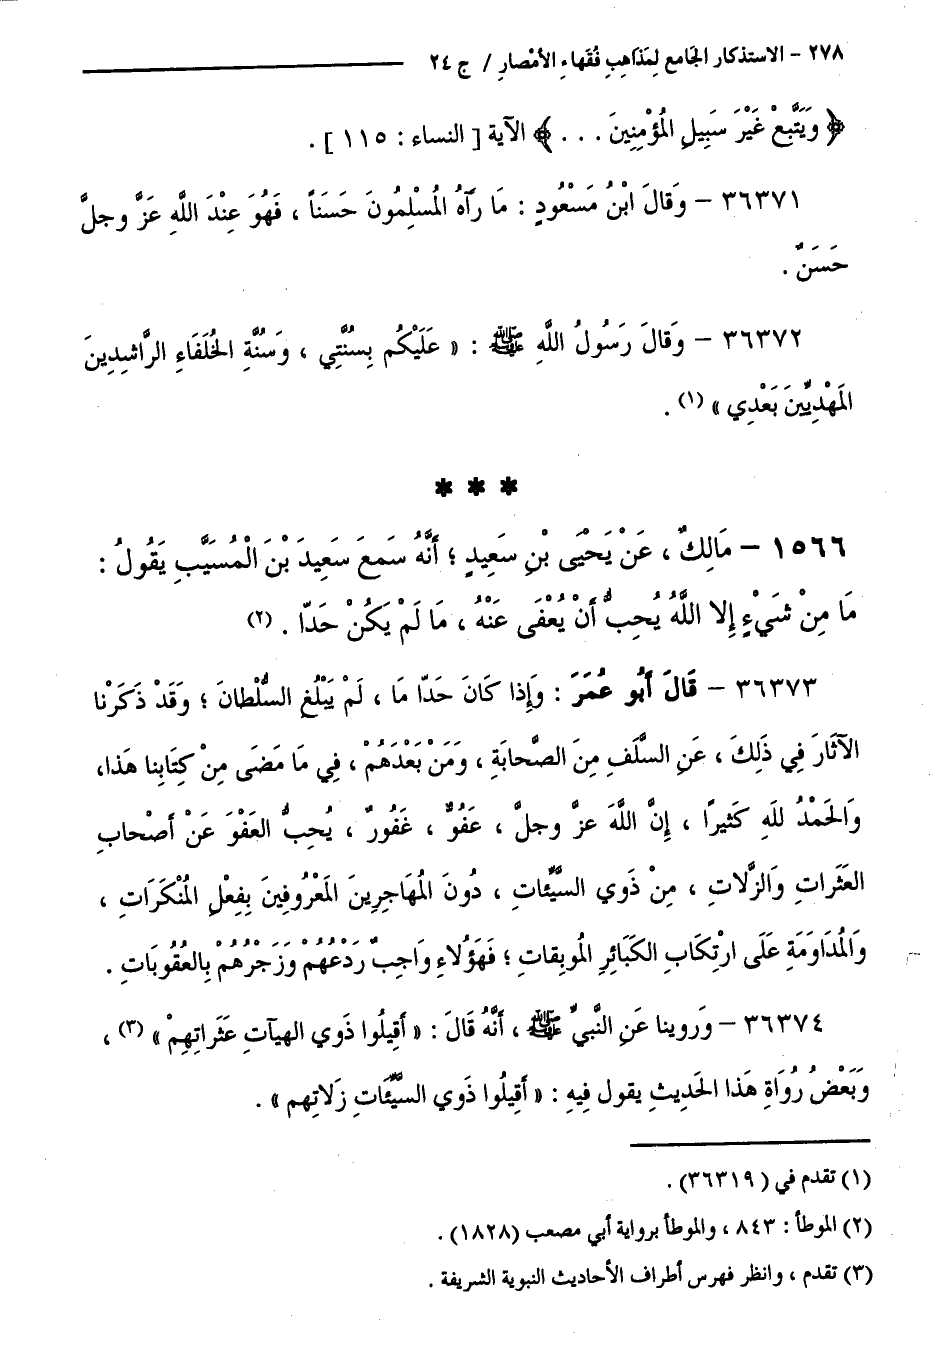 ٢٧٨ – الاستذكار الجَامع لِمَذاهِبِ فُقَهاءِ الأمْصارِ / ج ٢٤
﴿ وَيَتَّبِعْ غَيْرَ سَبِيلِ المُؤْمِنِينَ . . . ﴾ الآية [ النساء : ١١٥ ] .
٣٦٣٧١ – وَقالَ ابْنُ مَسْعُودٍ : مَا رَآهُ المُسْلِمُونَ حَسَناً ، فَهُوَ عِنْدَ اللَّهِ عَزَّ وجلَّ
حَسَنٌ .
٣٦٣٧٢ – وَقالَ رَسُولُ اللَّهِ ﷺ : « عَلَيْكُم بِسُنَّتِي ، وَسُنَّةِ الخُلَفَاءِ الرَّاشِدِينَ
المَهْدِيِّينَ بَعْدِي » (١) .
* * *
١٥٦٦ – مَالِكٌ ، عَنْ يَحْيَى بْنِ سَعِيدٍ ؛ أَنَّهُ سَمعَ سَعِيدَ بْنَ الْمُسَيَّبِ يَقُولُ :
مَا مِنْ شَيْءٍ إِلا اللَّهُ يُحِبُّ أَنْ يُعْفَى عَنْهُ ، مَا لَمْ يَكُنْ حَدّا . (٢)
٣٦٣٧٣ – قَالَ أَبُو عُمَرَ : وَإِذا كَانَ حَدّا مَا ، لَمْ يَبْلُغِ السُّلْطانَ ؛ وَقَدْ ذَكَرْنا
الآثَارَ فِي ذَلِكَ ، عَنِ السَّلَفِ مِنَ الصَّحابَةِ ، وَمَنْ بَعْدَهُمْ ، فِي مَا مَضَى مِنْ كِتَابِنا هَذا،
وَالحَمْدُ للهِ كَثِيرًا ، إِنَّ اللَّهَ عزَّ وجلَّ ، عَفُوٌّ ، غَفُورٌ ، يُحِبُّ العَفْوَ عَنْ أصْحابِ
العَثَراتِ وَالزَّلاتِ ، مِنْ ذَوي السَّيِّئات ، دُونَ المُهَاجِرِينَ المَعْرُوفِينَ بِفِعْلِ المُنْكَرَاتِ ،
وَالمُدَاوَمَةِ عَلَى ارْتِكَابِ الكَبَائِرِ المُوبِقاتِ ؛ فَهَؤُلاءِ وَاجِبٌ رَدْعُهُمْ وَزَجْرُهُمْ بِالعُقُوبَاتِ .
٣٦٣٧٤ – وَروينا عَنِ النَّبِيِّ ﷺ ، أَنَّهُ قَالَ : « أَقِيلُوا ذَوِي الهيآتِ عَثَراتِهِمْ » (٣) ،
وَبَعْضُ رُوَاةِ هَذا الحَدِيثِ يقول فِيهِ : « أَقِيلُوا ذَوي السَّيِّئَاتِ زَلاتِهم » .
(١) تقدم في ( ٣٦٣١٩) .
(٢) الموطأ : ٨٤٣ ، والموطأ برواية أبي مصعب (١٨٢٨) .
(٣) تقدم ، وانظر فهرس أطراف الأحاديث النبوية الشريفة .